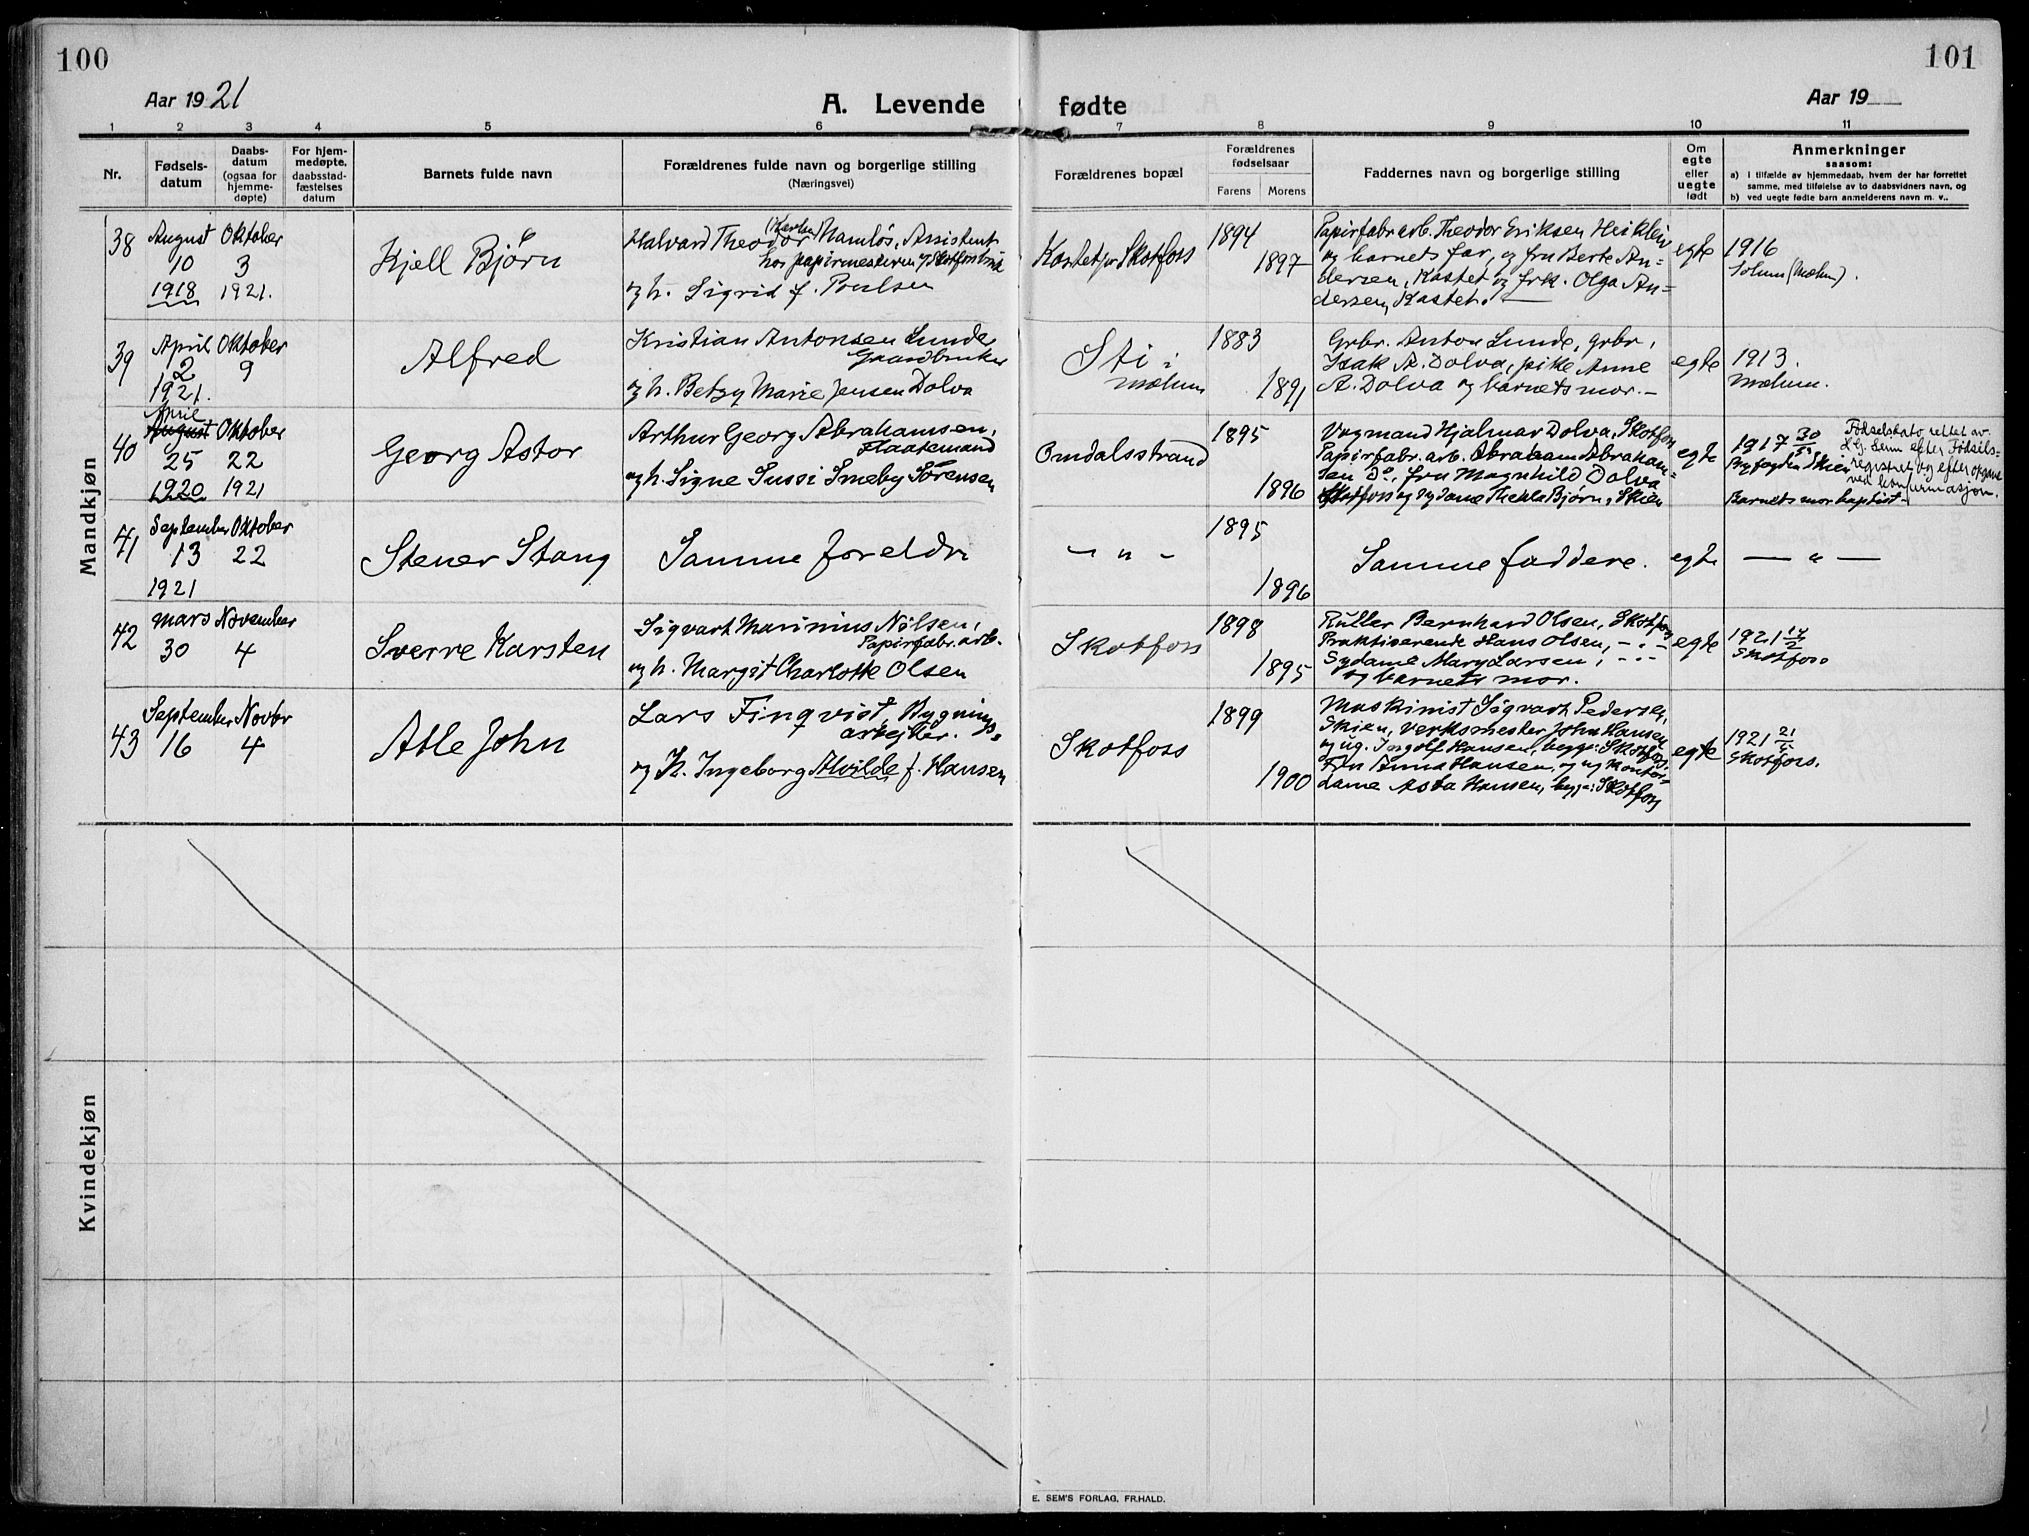 100
101
Aar 1921
A. Levende fødte
Aar 19
1 2 3 4 5 6 7 8 9 10 11
Nr.
Fødsels-
datum
Daabs-
datum
(ogsaa for
hjemme-
døpte)
For hjem-
medøpte,
daabsstad-
fæstelses
datum
Barnets fulde navn
Forældrenes fulde navn og borgerlige stilling
(Næringsvei)
Forældrenes bopæl
Forældrenes
fødselsaar
Farens Morens
Faddernes navn og borgerlige stilling
Om
egte
eller
uegte
født
Anmerkninger
saasom:
a) I tilfælde av hjemmedaab, hvem der har forrettet
samme, med tilføielse av to daabsvidners navn, og
b) ved uegte fødte barn anmelderens navn m. v..
Mandkjøn
38
August
10
1918
Oktober
3
1921.
Kjell Bjørn
Halvard Theodor Namløs, Assistent
hos papirmesteren
og h. Sigrid f. Poulsen
Kastet pr Skotfoss
1894
1897
Papirfabr.arb. Theodor Eriksen
og barnets far, og fru Berte An-
dersen, Kastet og frk. Olga An-
dersen, Kastet.
egte
1916
Solum (Mælum).
39
April
2
1921.
Oktober
9
Alfred
Kristian Antonsen Lunde
Gaardbruker
og h. Betzy Marie Jensen Dolva
Sti i
Mælum
1883
1891
Grbr. Anton Lunde, grbr.
Isak A. Dolva, pike Anne
A. Dolva og barnets mor.-
egte
1913.
Mælum.
40
April
August
25
1920
Oktober
22
1921
Georg Astor
Arthur Georg Abrahamsen,
Flaatemand
og h. Signe Sussi Smeby Sørensen
Omdalsstrand
1895
1896
Vognmand Hjalmar Dolva, Skotfoss
Papirfabr. arb. Abraham Abraham-
sen Do, fru Magnhild Dolva
Skotfoss og sydame Thekla Bjørn, Skien
egte
1917 30
Byfogden Skien
Barnets mor baptist
Fødselsdato rettet av
efter Fødsels-
registret og efter opgave
ved konfirmasjon.
41
September
13
1921
Oktober
22
Stener Stang
Samme foreldre
- „ -
1895
1896
Samme faddere.
egte
— „ —
42
Mars
30
November
4
Sverre Karsten
Sigvart Marinius Nilsen,
Papirfabr. arb.
og h. Margit Charlotte Olsen
Skotfoss
1898
1895
Ruller Bernhard Olsen, Skotfoss
Praktiserende Hans Olsen, - „ -
Sydame Mary Larsen, - „ -
og barnets mor.
egte
1921 12/2
Skotfoss
43
September
16
Novbr
4
Atle John
Lars Finqvist, Bygnings-
arbejder.
og h. Ingeborg Alvilde f. Hansen
Skotfoss
1899
1900
Maskinist Sigvart Pedersen,
Skien, Verksmester John Hansen
og ug. Ingolf Hansen, begge: Skotfoss,
Fru Anna Hansen, og ug kontor-
dame Asta Hansen, begge: Skotfoss
egte
1921 21/5
Skotfoss.
Kvindekjøn
E. SEM'S FORLAG, FR.HALD.